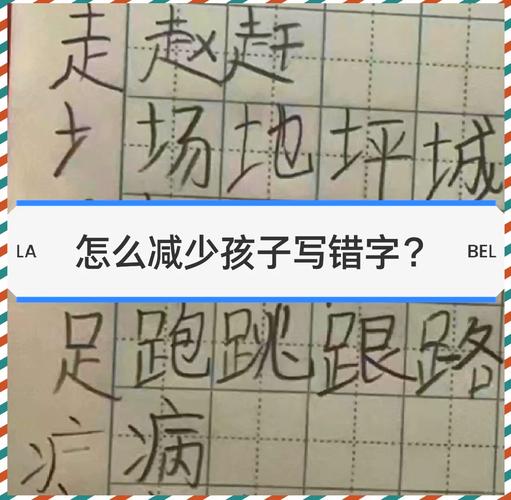 走 赵 赶
土 场 地 坪 城
LA 怎么减少孩子写错字？ BEL
足 跑 跳 跟 路
疒 病